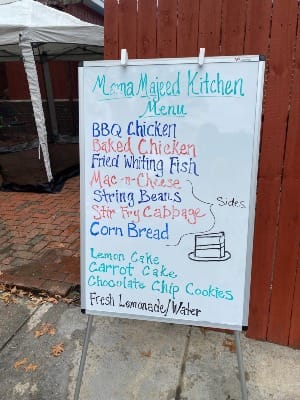 Mama Majeed Kitchen
Menu
BBQ Chicken
Baked Chicken
Fried Whiting Fish
Mac-n-Cheese
String Beans
Stir Fry Cabbage
Corn Bread
Sides
Lemon Cake
Carrot Cake
Chocolate Chip Cookies
Fresh Lemonade/Water